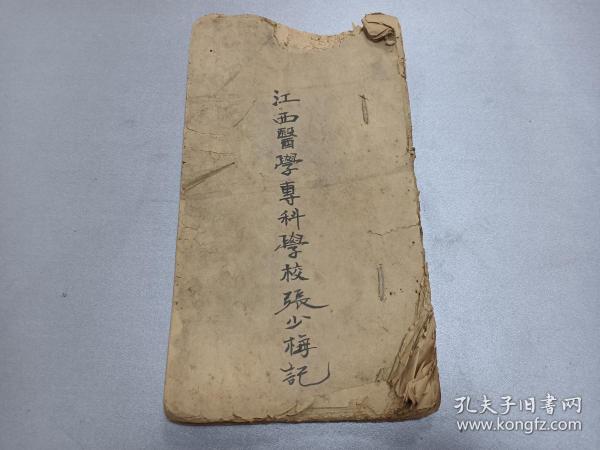 江西醫學專科學校張少梅記
孔夫子旧书网
www.kongfz.com